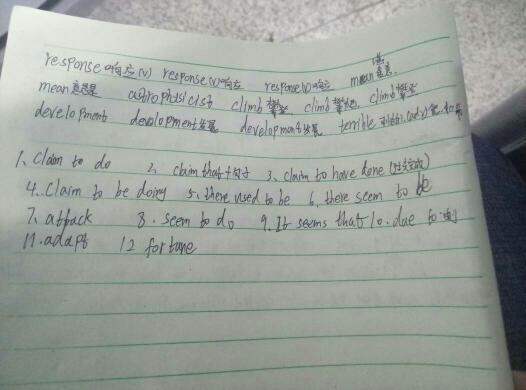 response 响应(v) response(v)响应 response(v)响应 mean 意思.
mean 意思是 astrophisicist climb 攀登 climb 攀登 climb 攀登
development development发展 development发展 terrible
1、claim to do 2、claim that+句子 3、claim to have done (过去完成)
4..claim to be doing 5、there used to be 6、there seem to be
7、attack 8、seem to do 9.It seems that 10.due to
11.adapt 12 fortune